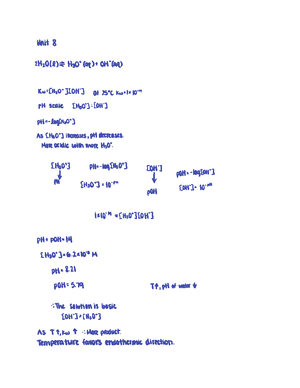 Unit 8
2H₂O(l) ⇌ H₃O⁺(aq) + OH⁻(aq)
Kw=[H₃O⁺][OH⁻] at 25°C Kw=1×10⁻¹⁴
pH scale [H₃O⁺]:[OH⁻]
pH=-log[H₃O⁺]
As [H₃O⁺] increases, pH decreases.
More acidic with more H₃O⁺.
[H₃O⁺] pH=-log[H₃O⁺] [OH⁻] pOH=-log[OH⁻]
↓ ↓
pH [H₃O⁺]=10⁻ᵖᴴ pOH [OH⁻]=10⁻ᵖᴼᴴ
1×10⁻¹⁴=[H₃O⁺][OH⁻]
pH + pOH=14
[H₃O⁺]=6.2×10⁻⁹ M
pH = 8.21
pOH = 5.79 T↑, pH of water ↓
∴ The solution is basic
[OH⁻]>[H₃O⁺]
As T↑, Kw ↑ ∴ More product.
Temperature favors endothermic direction.